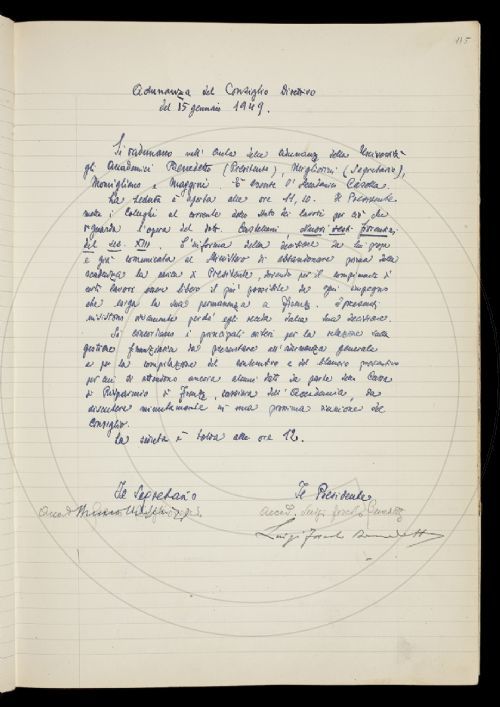 115
Adunanza del Consiglio Direttivo
del 15 gennaio 1949.
Si radunano nell'Aula delle adunanze della Università
gli Accademici Benedetto (Presidente), Migliorini (Segretario),
Momigliano e Maggini. È assente l'Accademico Casella.
La seduta è aperta alle ore 11,10. Il Presidente
mette i Colleghi al corrente dello stato dei lavori per ciò che
riguarda l'opera del dott. Castellani, Nuovi testi fiorentini
del sec. XIII. L'informa della decisione da lui presa
e già comunicata al Ministero di abbandonare prima della
scadenza la carica di Presidente, dovendo per il compimento di
certi lavori essere libero il più possibile da ogni impegno
che esiga la sua permanenza a Firenze. I presenti
insistono vivamente perché egli receda dalla sua decisione.
Si concordano i principali criteri per la relazione sulla
gestione finanziaria da presentare all'adunanza generale
e per la compilazione del consuntivo e del bilancio preventivo
per cui si attendono ancora alcuni dati da parte della Cassa
di Risparmio di Firenze, cassiera dell'Accademia, da
discutere minutamente in una prossima riunione del
Consiglio.
La seduta è tolta alle ore 12.
Il Segretario
Il Presidente
Accad. Bruno Migliorini
Accad. Luigi Foscolo Benedetto
Luigi Foscolo Benedetto